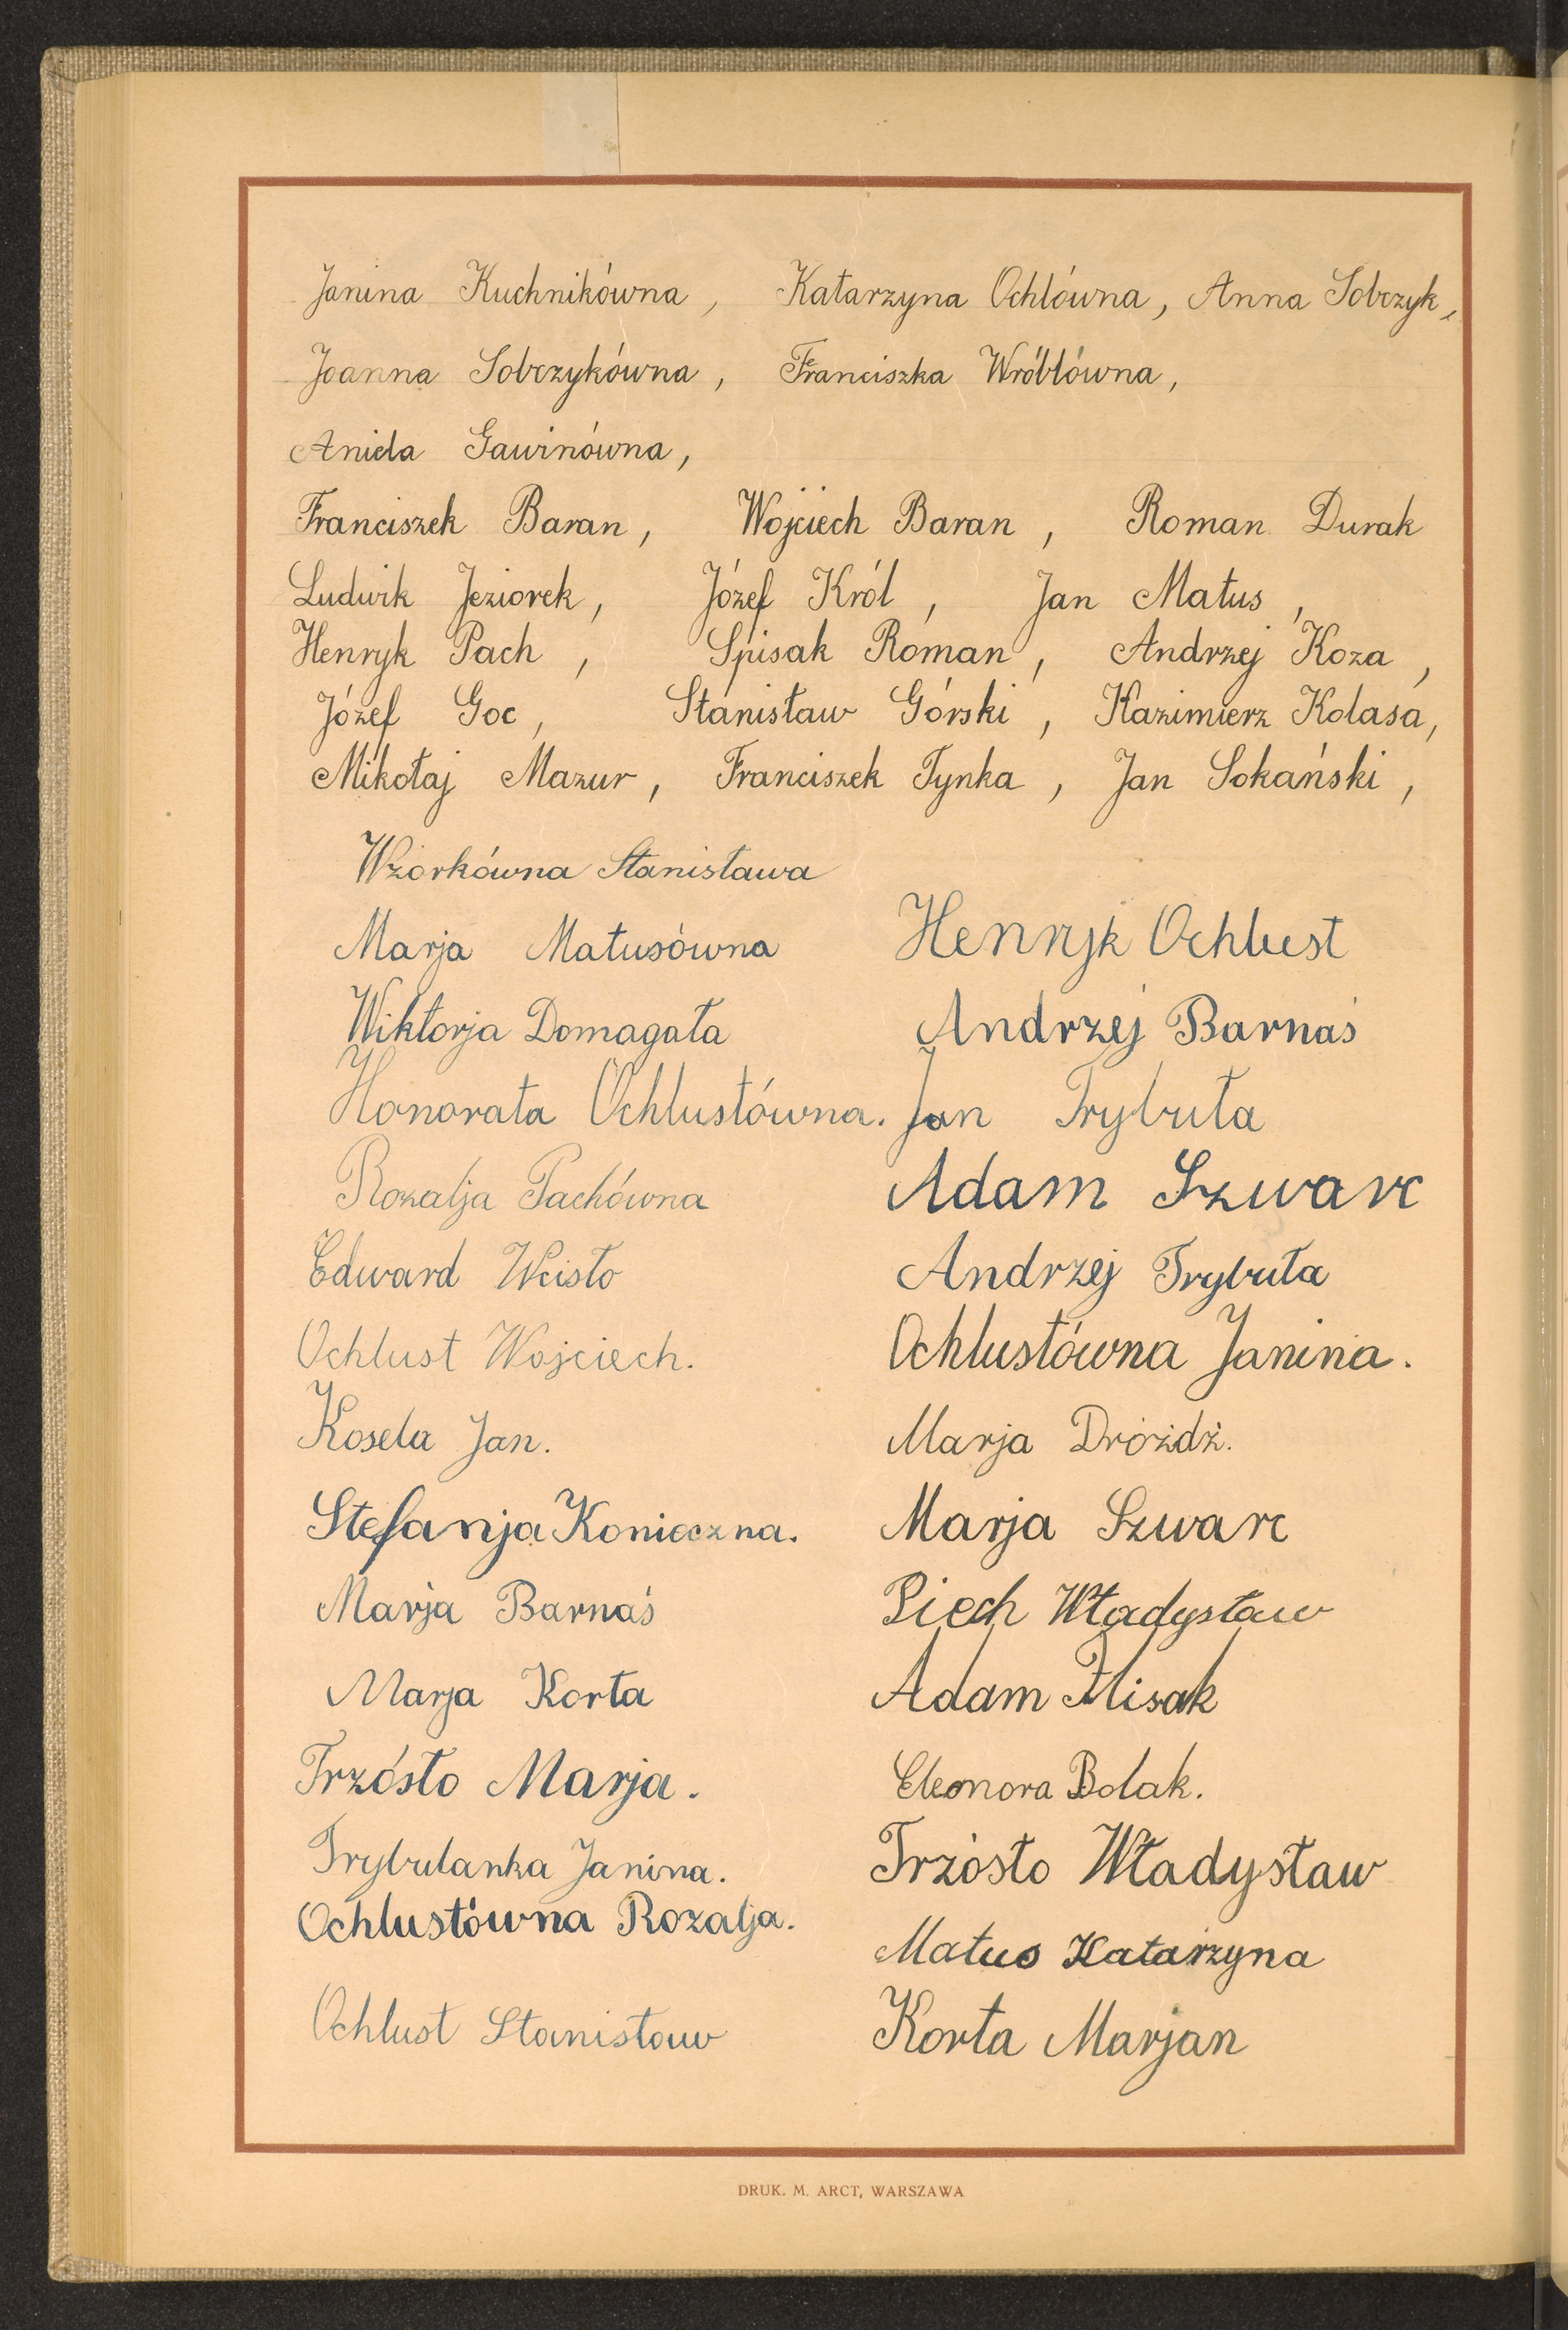 Janina Kuchnikówna, Katarzyna Ochlówna, Anna Sobczyk,
Joanna Sobczykówna, Franciszka Wróblówna,
Aniela Gawinówna,
Franciszek Baran, Wojciech Baran, Roman Durak
Ludwik Jeziorek, Józef Król, Jan Matus,
Henryk Pach, Spisak Roman, Andrzej Koza,
Józef Goc, Stanisław Górski, Kazimierz Kolasa,
Mikołaj Mazur, Franciszek Tynka, Jan Sokański,
Wziorkówna Stanisława
Marja Matusówna
Wiktorja Domagała
Honorata Ochlustówna.
Rozalja Pachówna
Edward Wcisło
Ochlust Wojciech.
Kosela Jan.
Stefanja Konieczna.
Marja Barnaś
Marja Korta
Trzósło Marja.
Trybulanka Janina.
Ochlustówna Rozalja.
Ochlust Stanisław
Henryk Ochlust
Andrzej Barnaś
Jan Trybuła
Adam Szwarc
Andrzej Trybuła
Ochlustówna Janina.
Marja Dróżdż.
Marja Szwarc
Piech Władysław
Adam Flisak
Eleonora Bolak.
Trzósło Władysław
Matus Katarzyna
Korta Marjan
DRUK. M. ARCT, WARSZAWA